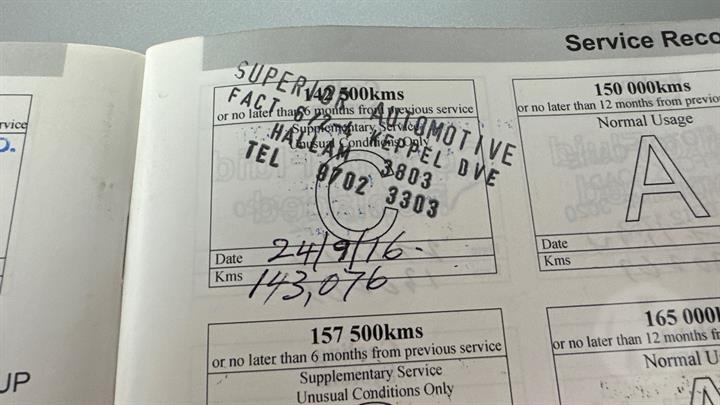 Service Reco
142 500kms
or no later than 6 months from previous service
Supplementary Service
Unusual Conditions Only
C
SUPERIOR AUTOMOTIVE
KEPPEL DVE
HALLAM 3803
TEL 9702 3303
Date 24/9/16
Kms 143,076
150 000kms
or no later than 12 months from previo
Normal Usage
A
Date
Kms
157 500kms
or no later than 6 months from previous service
Supplementary Service
Unusual Conditions Only
165 000
or no later than 12 months f
Normal U
A
rvice
UP